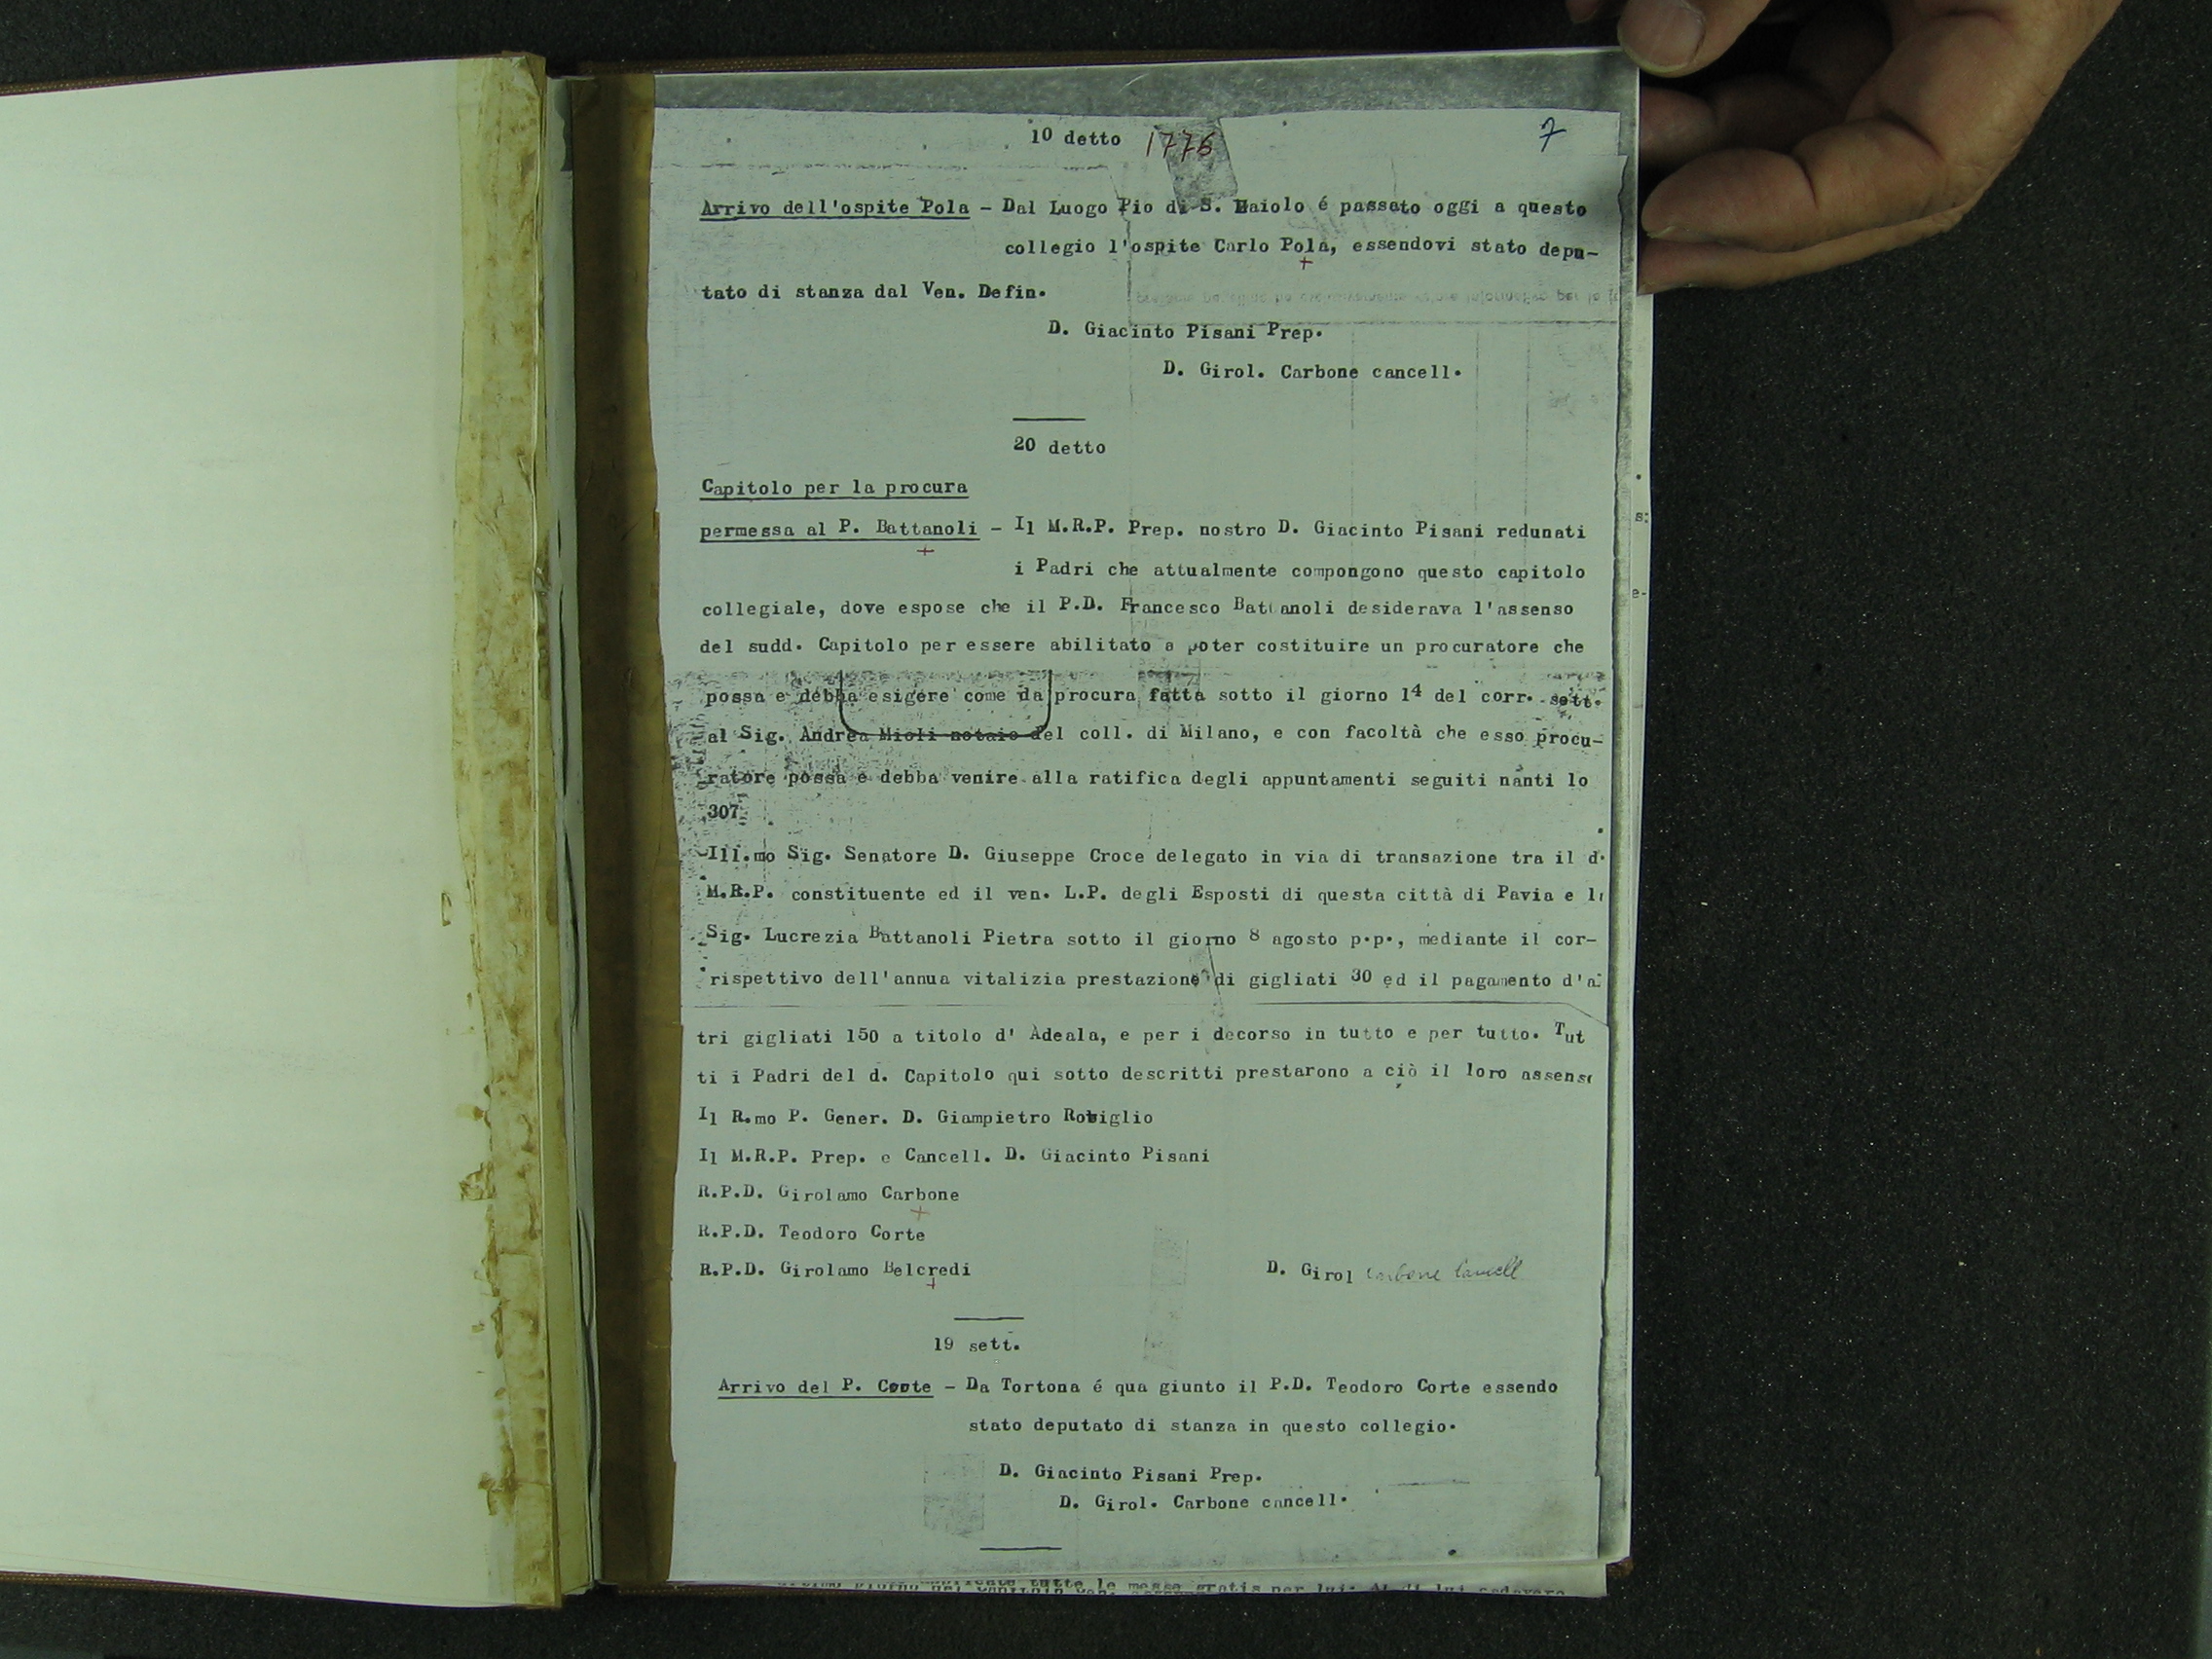 10 detto 1776 7
Arrivo dell'ospite Pola - Dal Luogo Pio di S. Maiolo é passato oggi a questo
collegio l'ospite Carlo Pola, essendovi stato depu-
tato di stanza dal Ven. Defin.
D. Giacinto Pisani Prep.
D. Girol. Carbone cancell.
20 detto
Capitolo per la procura
permessa al P. Battanoli - Il M.R.P. Prep. nostro D. Giacinto Pisani redunati
i Padri che attualmente compongono questo capitolo
collegiale, dove espose che il P.D. Francesco Battanoli desiderava l'assenso
del sudd. Capitolo per essere abilitato a poter costituire un procuratore che
possa e debba esigere come da procura fatta sotto il giorno 14 del corr. sett.
al Sig. Andrea Mioli notaio del coll. di Milano, e con facoltà che esso procu-
ratore possa e debba venire alla ratifica degli appuntamenti seguiti nanti lo
307
Ill.mo Sig. Senatore D. Giuseppe Croce delegato in via di transazione tra il d.
M.R.P. constituente ed il ven. L.P. degli Esposti di questa città di Pavia e
Sig. Lucrezia Battanoli Pietra sotto il giorno 8 agosto p.p., mediante il cor-
rispettivo dell'annua vitalizia prestazione di gigliati 30 ed il pagamento d'a
tri gigliati 150 a titolo d' Adeala, e per i decorso in tutto e per tutto. Tut
ti i Padri del d. Capitolo qui sotto descritti prestarono a ciò il loro assens
Il R.mo P. Gener. D. Giampietro Roviglio
Il M.R.P. Prep. e Cancell. D. Giacinto Pisani
R.P.D. Girolamo Carbone
R.P.D. Teodoro Corte
R.P.D. Girolamo Belcredi D. Girol Carbone Cancell
19 sett.
Arrivo del P. Corte - Da Tortona é qua giunto il P.D. Teodoro Corte essendo
stato deputato di stanza in questo collegio.
D. Giacinto Pisani Prep.
D. Girol. Carbone cancell.